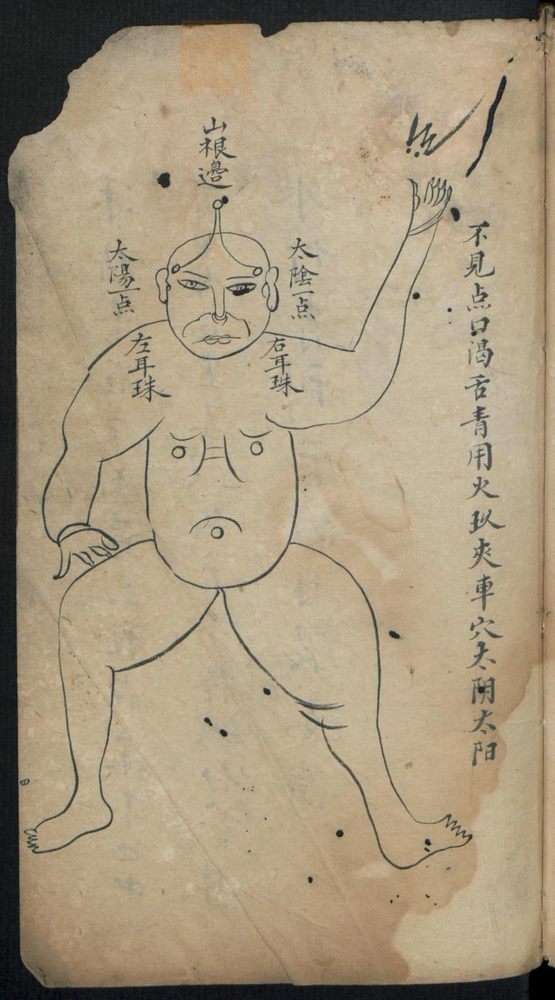 不見点口渴舌青用火玖夾車穴太阴太阳
山根邊
太陰一点
右耳珠
太陽一点
左耳珠